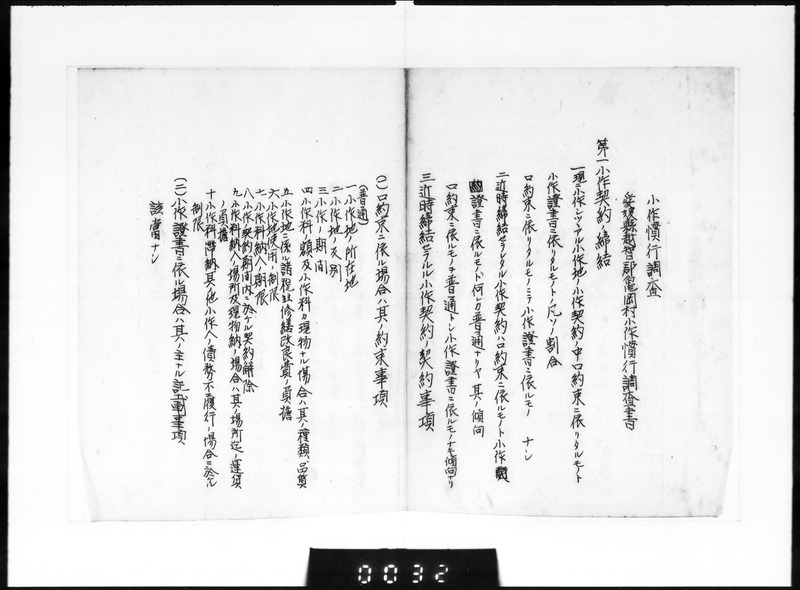 小作慣行調査
愛媛縣越智郡亀岡村小作慣行調査書
第一小作契約ノ締結
一現ニ小作シツアル小作地ノ小作契約ノ中口約束ニ依リタルモノト
小作證書ニ依リタルモノト凡ソノ割合
口約束ニ依リタルモノノミニテ小作證書ニ依ルモノ ナシ
二近時締結セラレタル小作契約ハ口約束ニ依ルモノト小作
證書ニ依ルモノト何レカ普通ナリヤ其ノ傾向
口約束ニ依ルモノヲ普通トシ小作證書ニ依ルモノナキ傾向ナリ
三近時締結セラルル小作契約ノ契約事項
(一)口約束ニ依ル場合ハ其ノ約束事項
(普通)
一小作地ノ所在地
二小作地ノ反別
三小作ノ期間
四小作料ノ額及小作料カ現物ナル場合ハ其ノ種類、品質
五小作地ニ係ル諸税並修繕改良費ノ負擔
六小作地使用ノ制限
七小作料納入ノ期限
八小作契約期間内ニ於ケル契約解除
九小作料納入ノ場所及現物納ノ場合ハ其ノ場所迄ノ運賃
ノ負擔
十小作料滞納其ノ他小作人ノ債務不履行ノ場合ニ於ケル
制限
(二)小作證書ニ依ル場合ハ其ノ主ナル記載事項
該當ナシ
0032